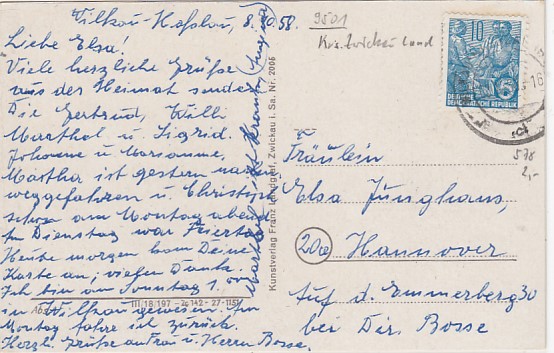 Vilkau-Haßlau, 8.10.58.
Liebe Elsa!
Viele herzliche Grüße
aus der Heimat senden
Die Gertrud, Willi
Marthel u. Sigrid.
Johanne u. Marianne,
Martha ist gestern nach
weggefahren u. Christine
schon am Montag abend
Am Dienstag war Feiertag
Heute morgen kam Deine
Karte an, vielen Dank.
Ich bin am Sonntag 1. 
in Wilkau gewesen. Am
Montag fahre ich zurück.
Herzl. Grüße an Frau u. Herrn Bosse.
Marthel ist krank
Kunstverlag Franz Landgraf, Zwickau i. Sa. Nr. 2005
III 18 197
9501
Krs. Zwickau Land
10
DEUTSCHE
DEMOKRATISCHE REPUBLIK
16
578
2,-
Fräulein
Elsa Junghans,
20a Hannover
Auf d. Emmerberg 30
bei Dir. Bosse